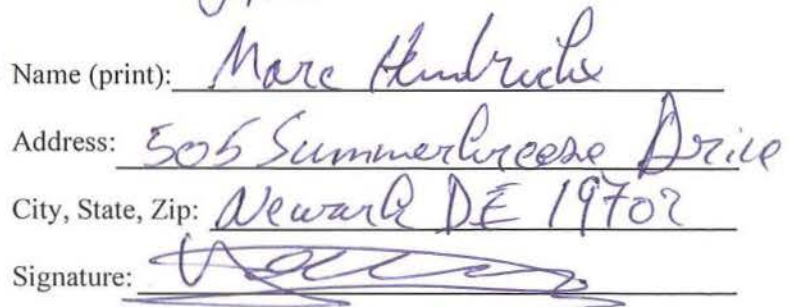 Name (print): Marc Hendricks
Address: 505 Summerbreeze Drive
City, State, Zip: Newark DE 19702
Signature: